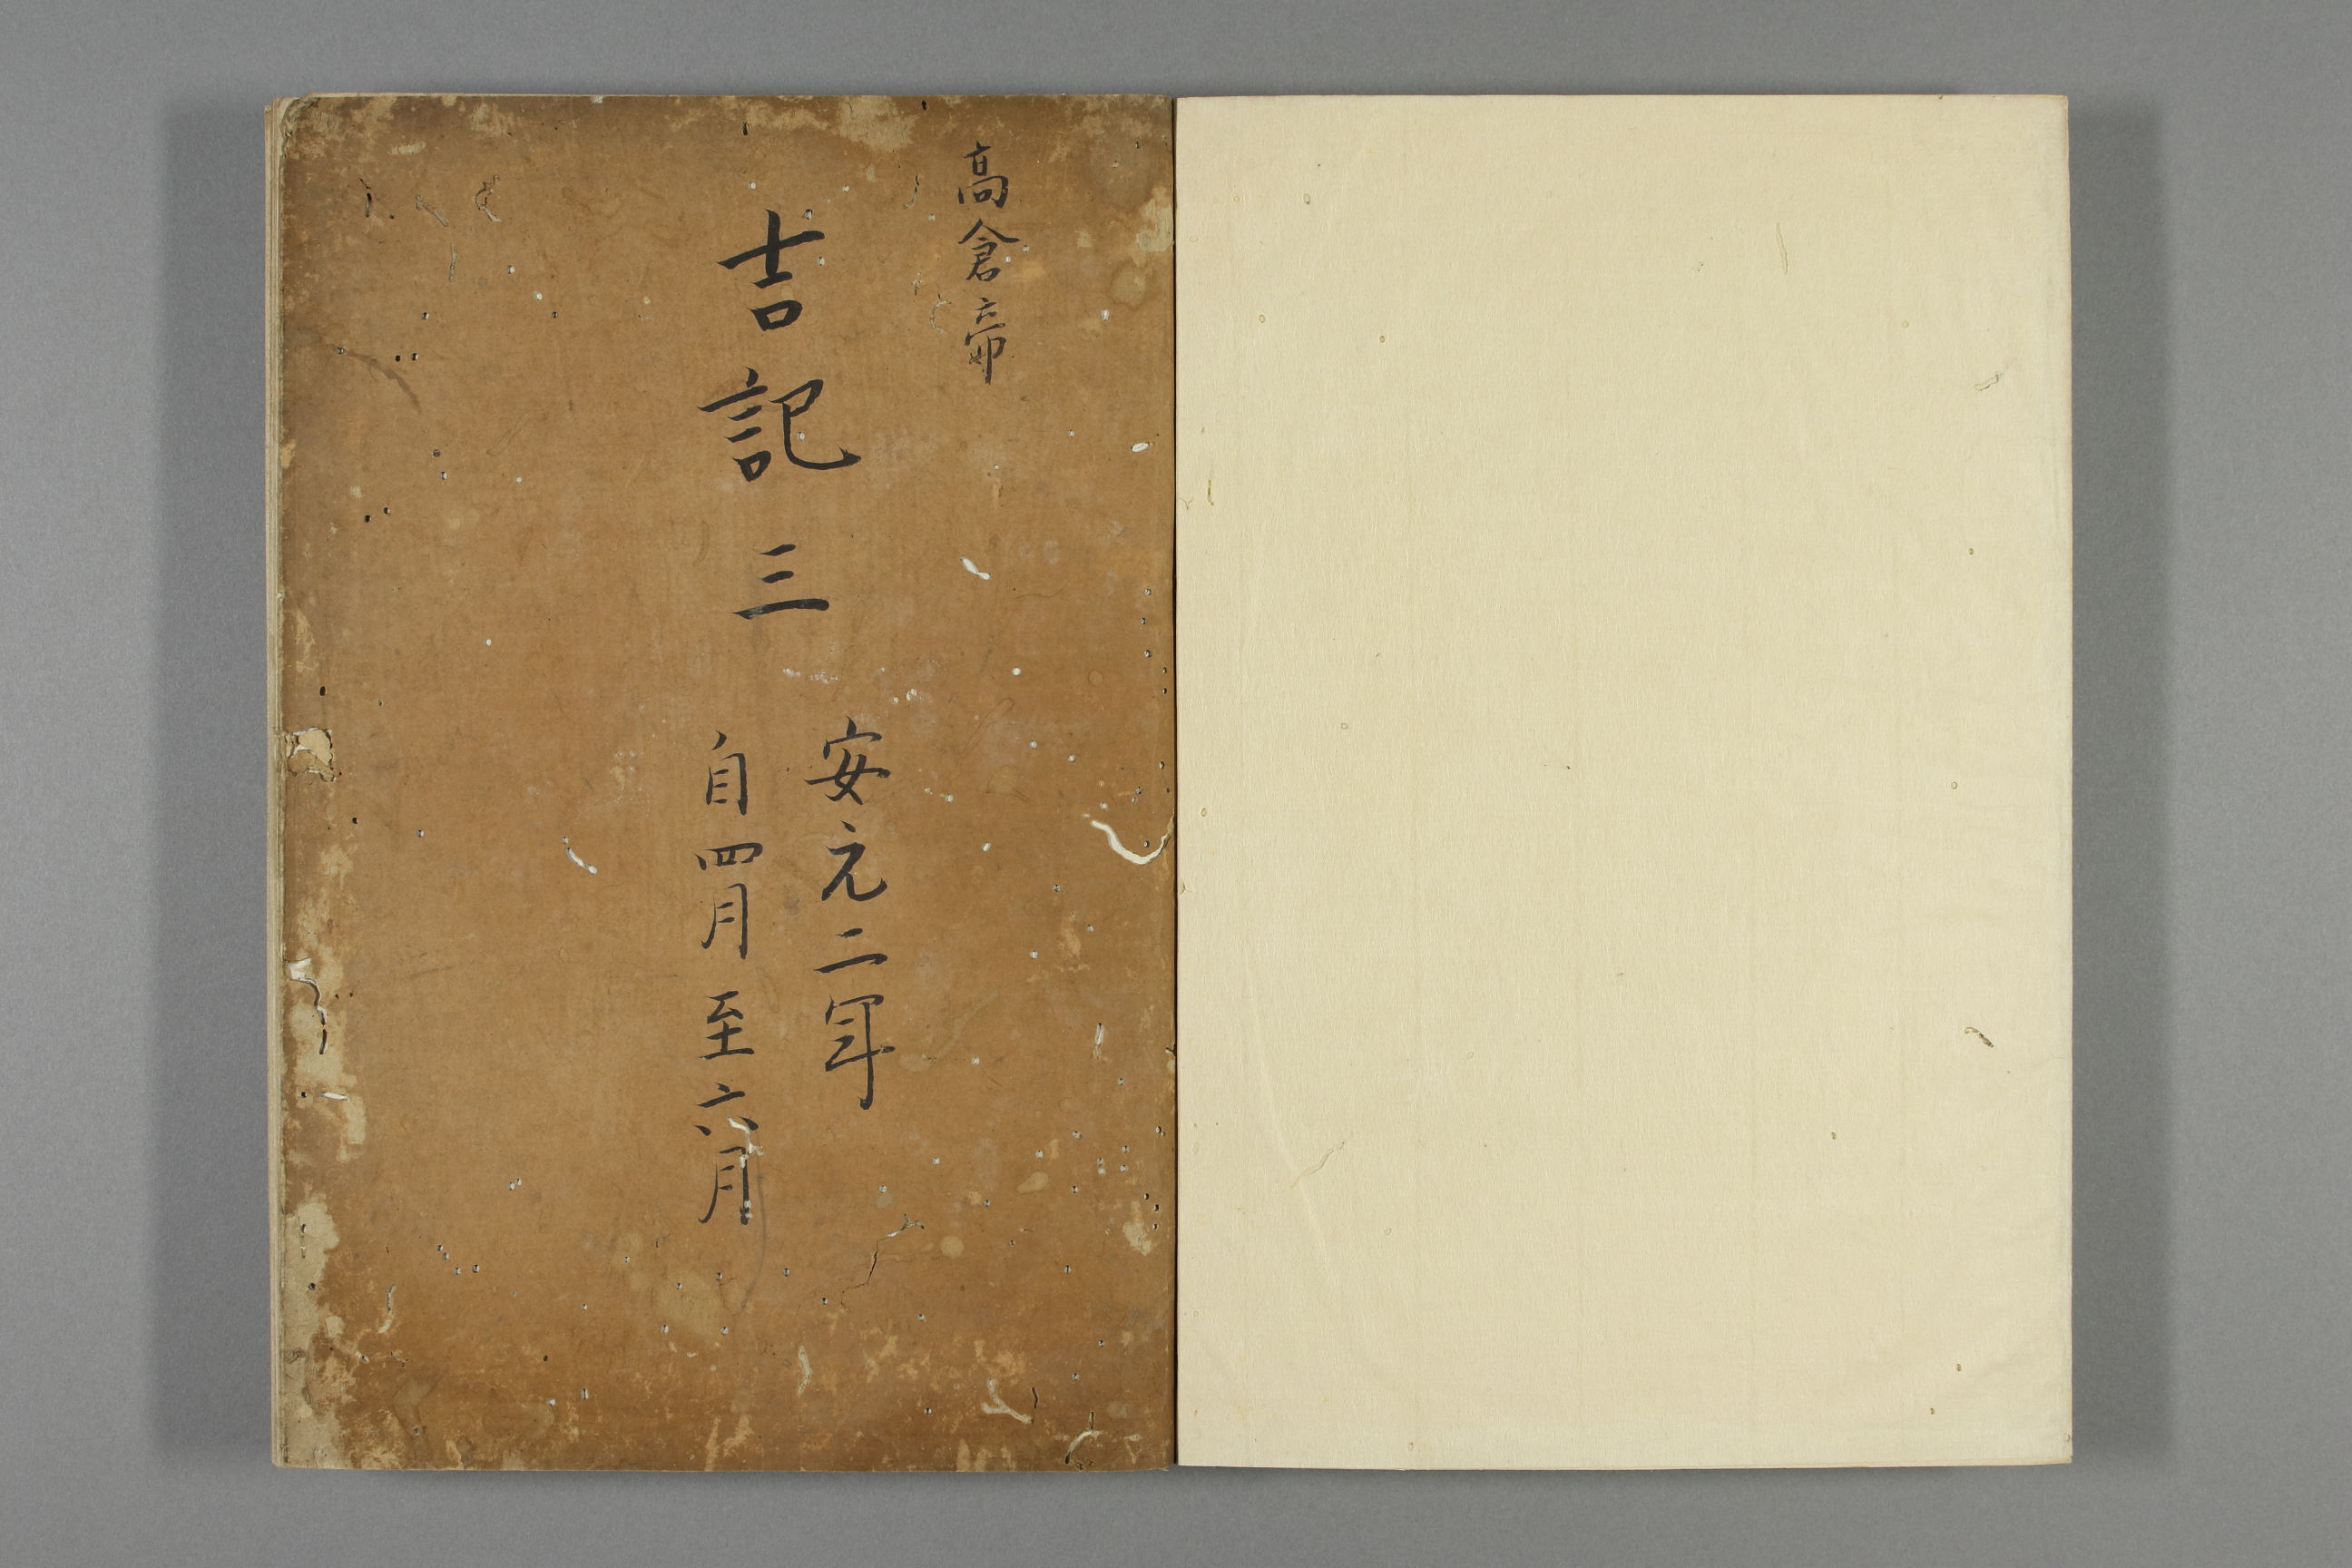 高倉帝
吉記 三
安元二年
自四月至六月